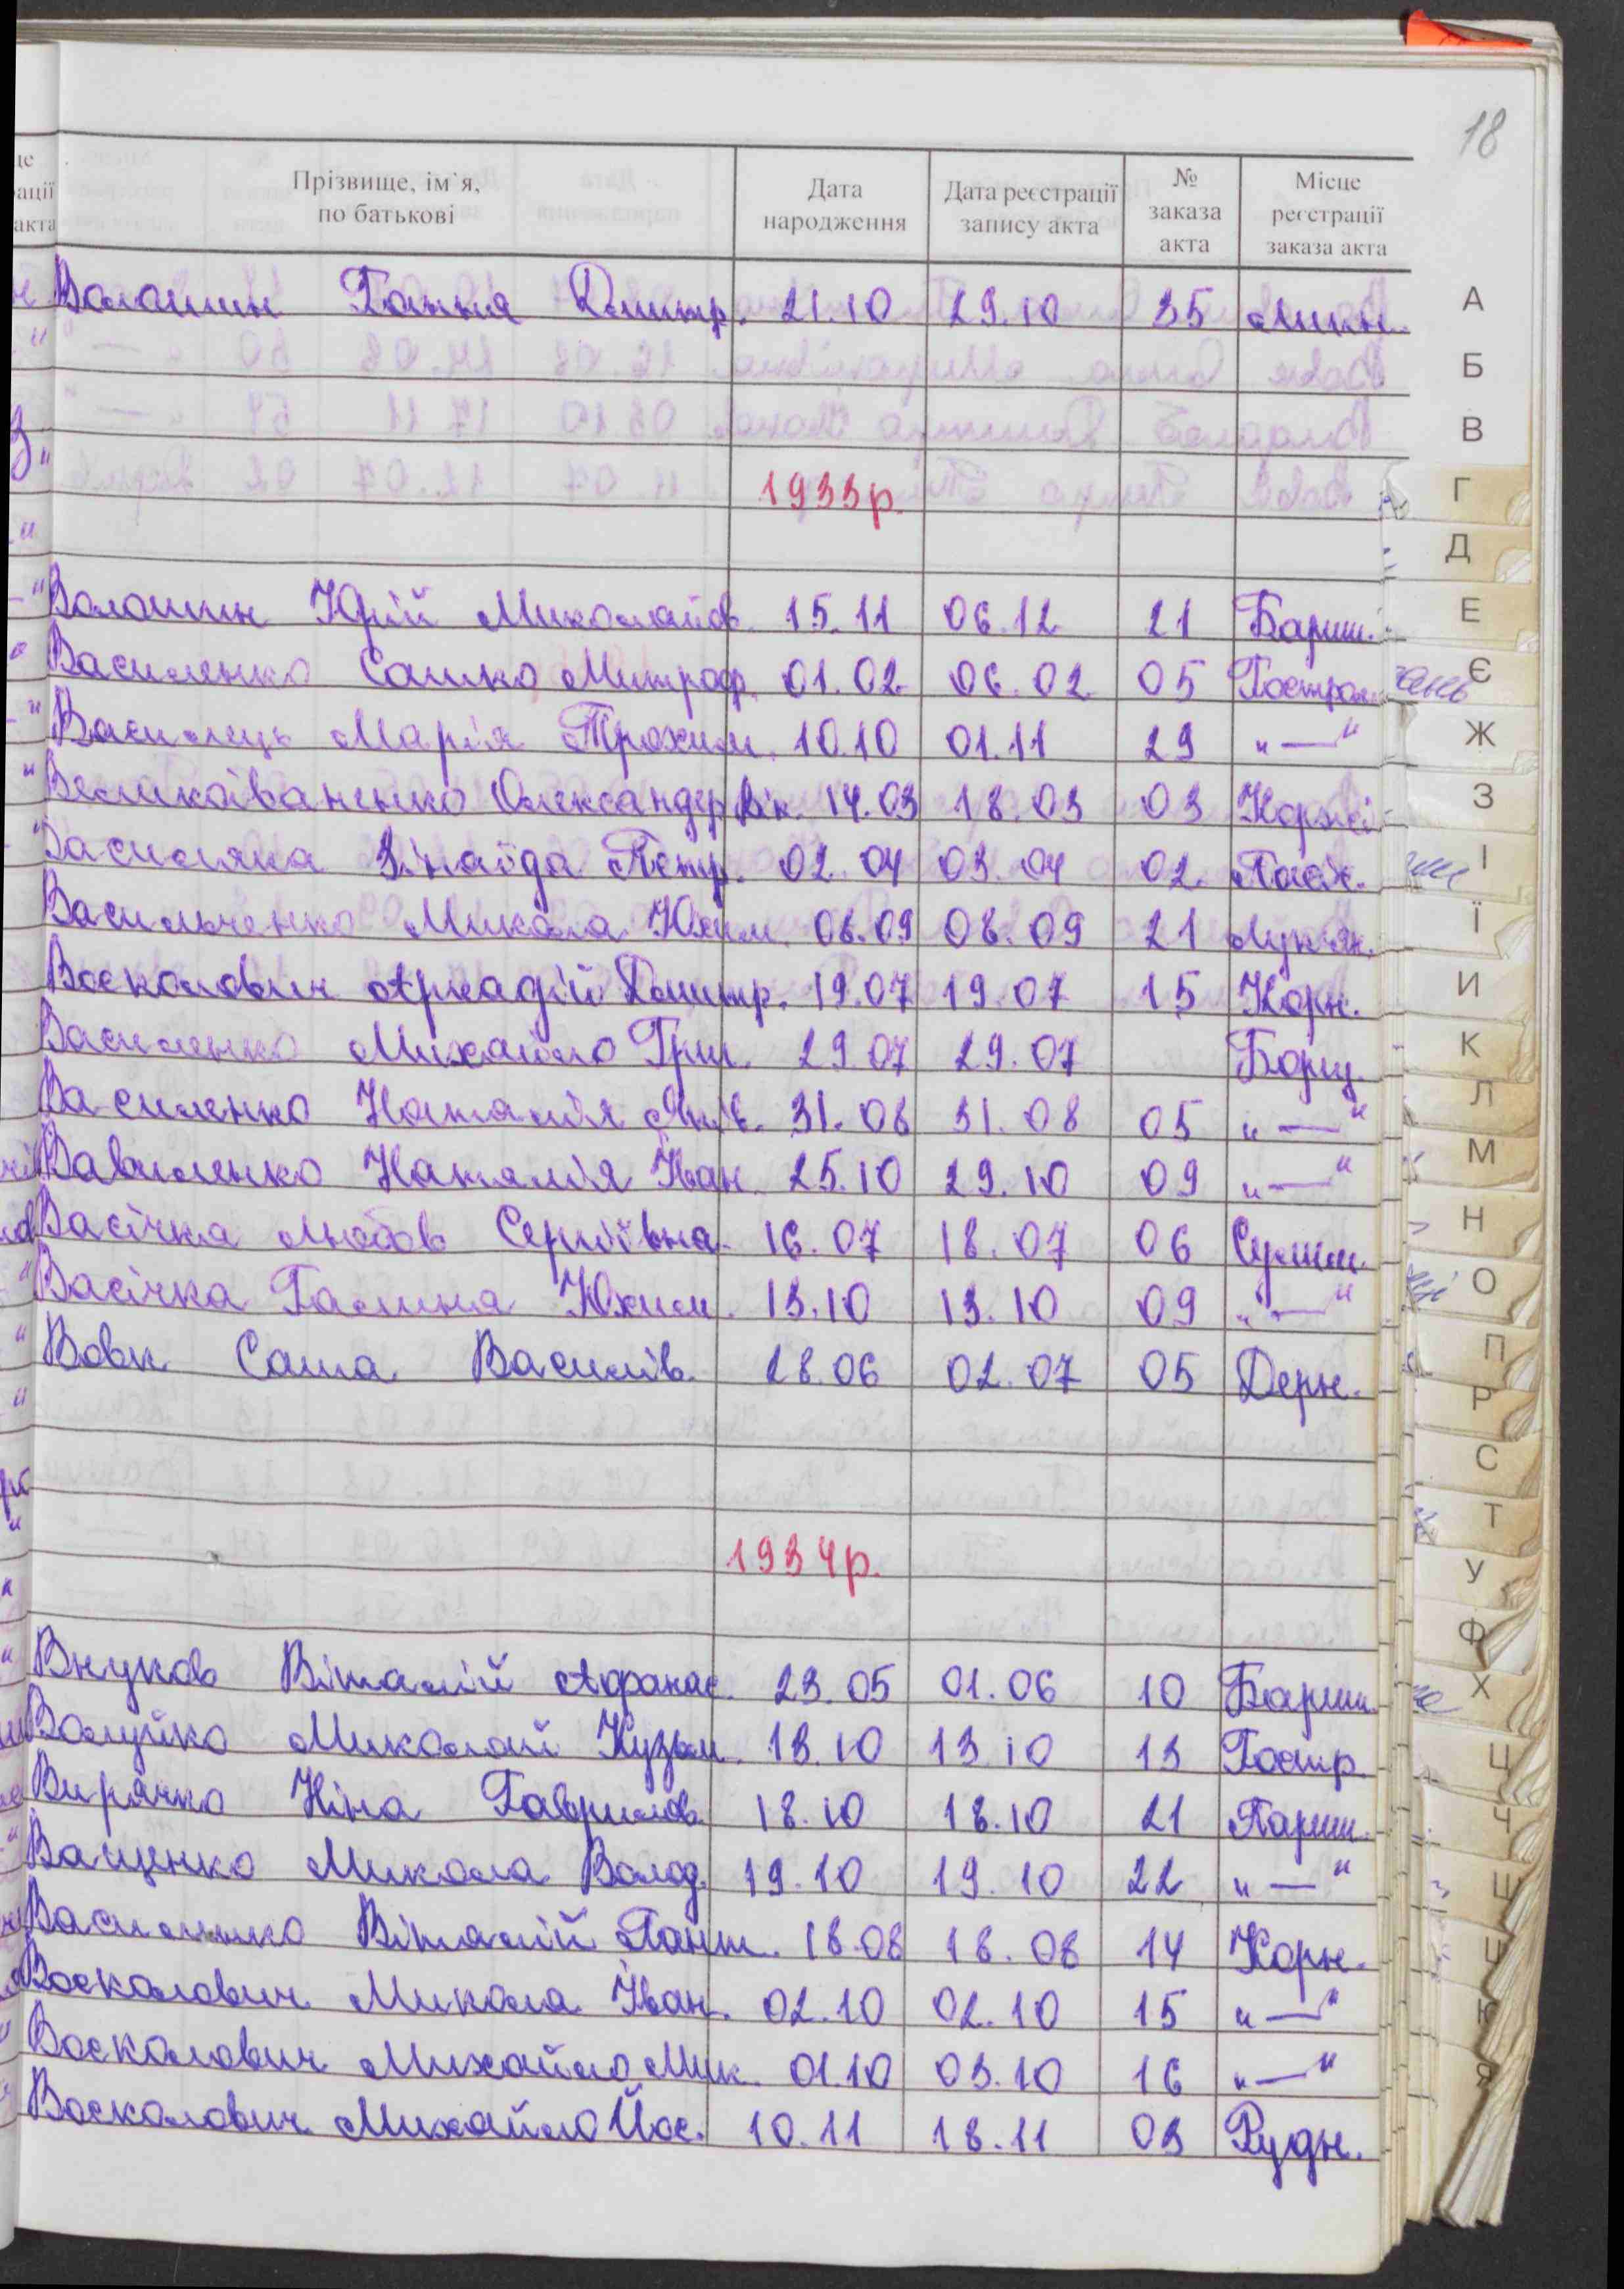 18
Прізвище, ім`я, по батькові Дата народження Дата реєстрації запису акта № заказа акта Місце реєстрації заказа акта
Волошин Ганна Дмитр. 21.10 29.10 35 Лукн.
1933р.
Волошин Юрій Миколайов. 15.11 06.12 21 Бариш.
Василенко Сашко Митроф. 01.02 06.02 05 Гостром
Василець Марія Трохим. 10.10 01.11 29 "—"
Великоіваненко Олександер Вік. 14.03 18.03 03 Коржі
Василяка Зінаїда Петр. 02.04 03.04 02 Пасіч.
Васильченко Микола Юхим. 08.09 08.09 21 Лук'ян.
Восколович Аркадій Дмитр. 19.07 19.07 15 Корн.
Василенко Михайло Григ. 29.07 29.07 Борщ.
Василенко Наталія Яків. 31.08 31.08 05 "—"
Вавиленко Наталія Іван. 25.10 29.10 09 "—"
Васічка Любов Сергіївна. 16.07 18.07 06 Сулим.
Васічка Галина Юхим. 13.10 13.10 09 "—"
Вовк Саша Василів. 28.06 02.07 05 Дерн.
1934р.
Внуков Віталій Афанас. 23.05 01.06 10 Бариш.
Валуйко Миколай Кузьм. 13.10 13.10 13 Гостр.
Вирячко Ніна Гаврилов. 18.10 18.10 21 Париш.
Ващенко Микола Волод. 19.10 19.10 22 "—"
Василенко Віталій Пант. 18.08 18.08 14 Корн.
Восколович Микола Іван. 02.10 02.10 15 "—"
Восколович Михайло Мик. 01.10 03.10 16 "—"
Восколович Михайло Йос. 10.11 18.11 03 Рудн.
А
Б
В
Г
Д
Е
Є
Ж
З
І
Ї
И
К
Л
М
Н
О
П
Р
С
Т
У
Ф
Х
Ц
Ч
Ш
Щ
Ю
Я